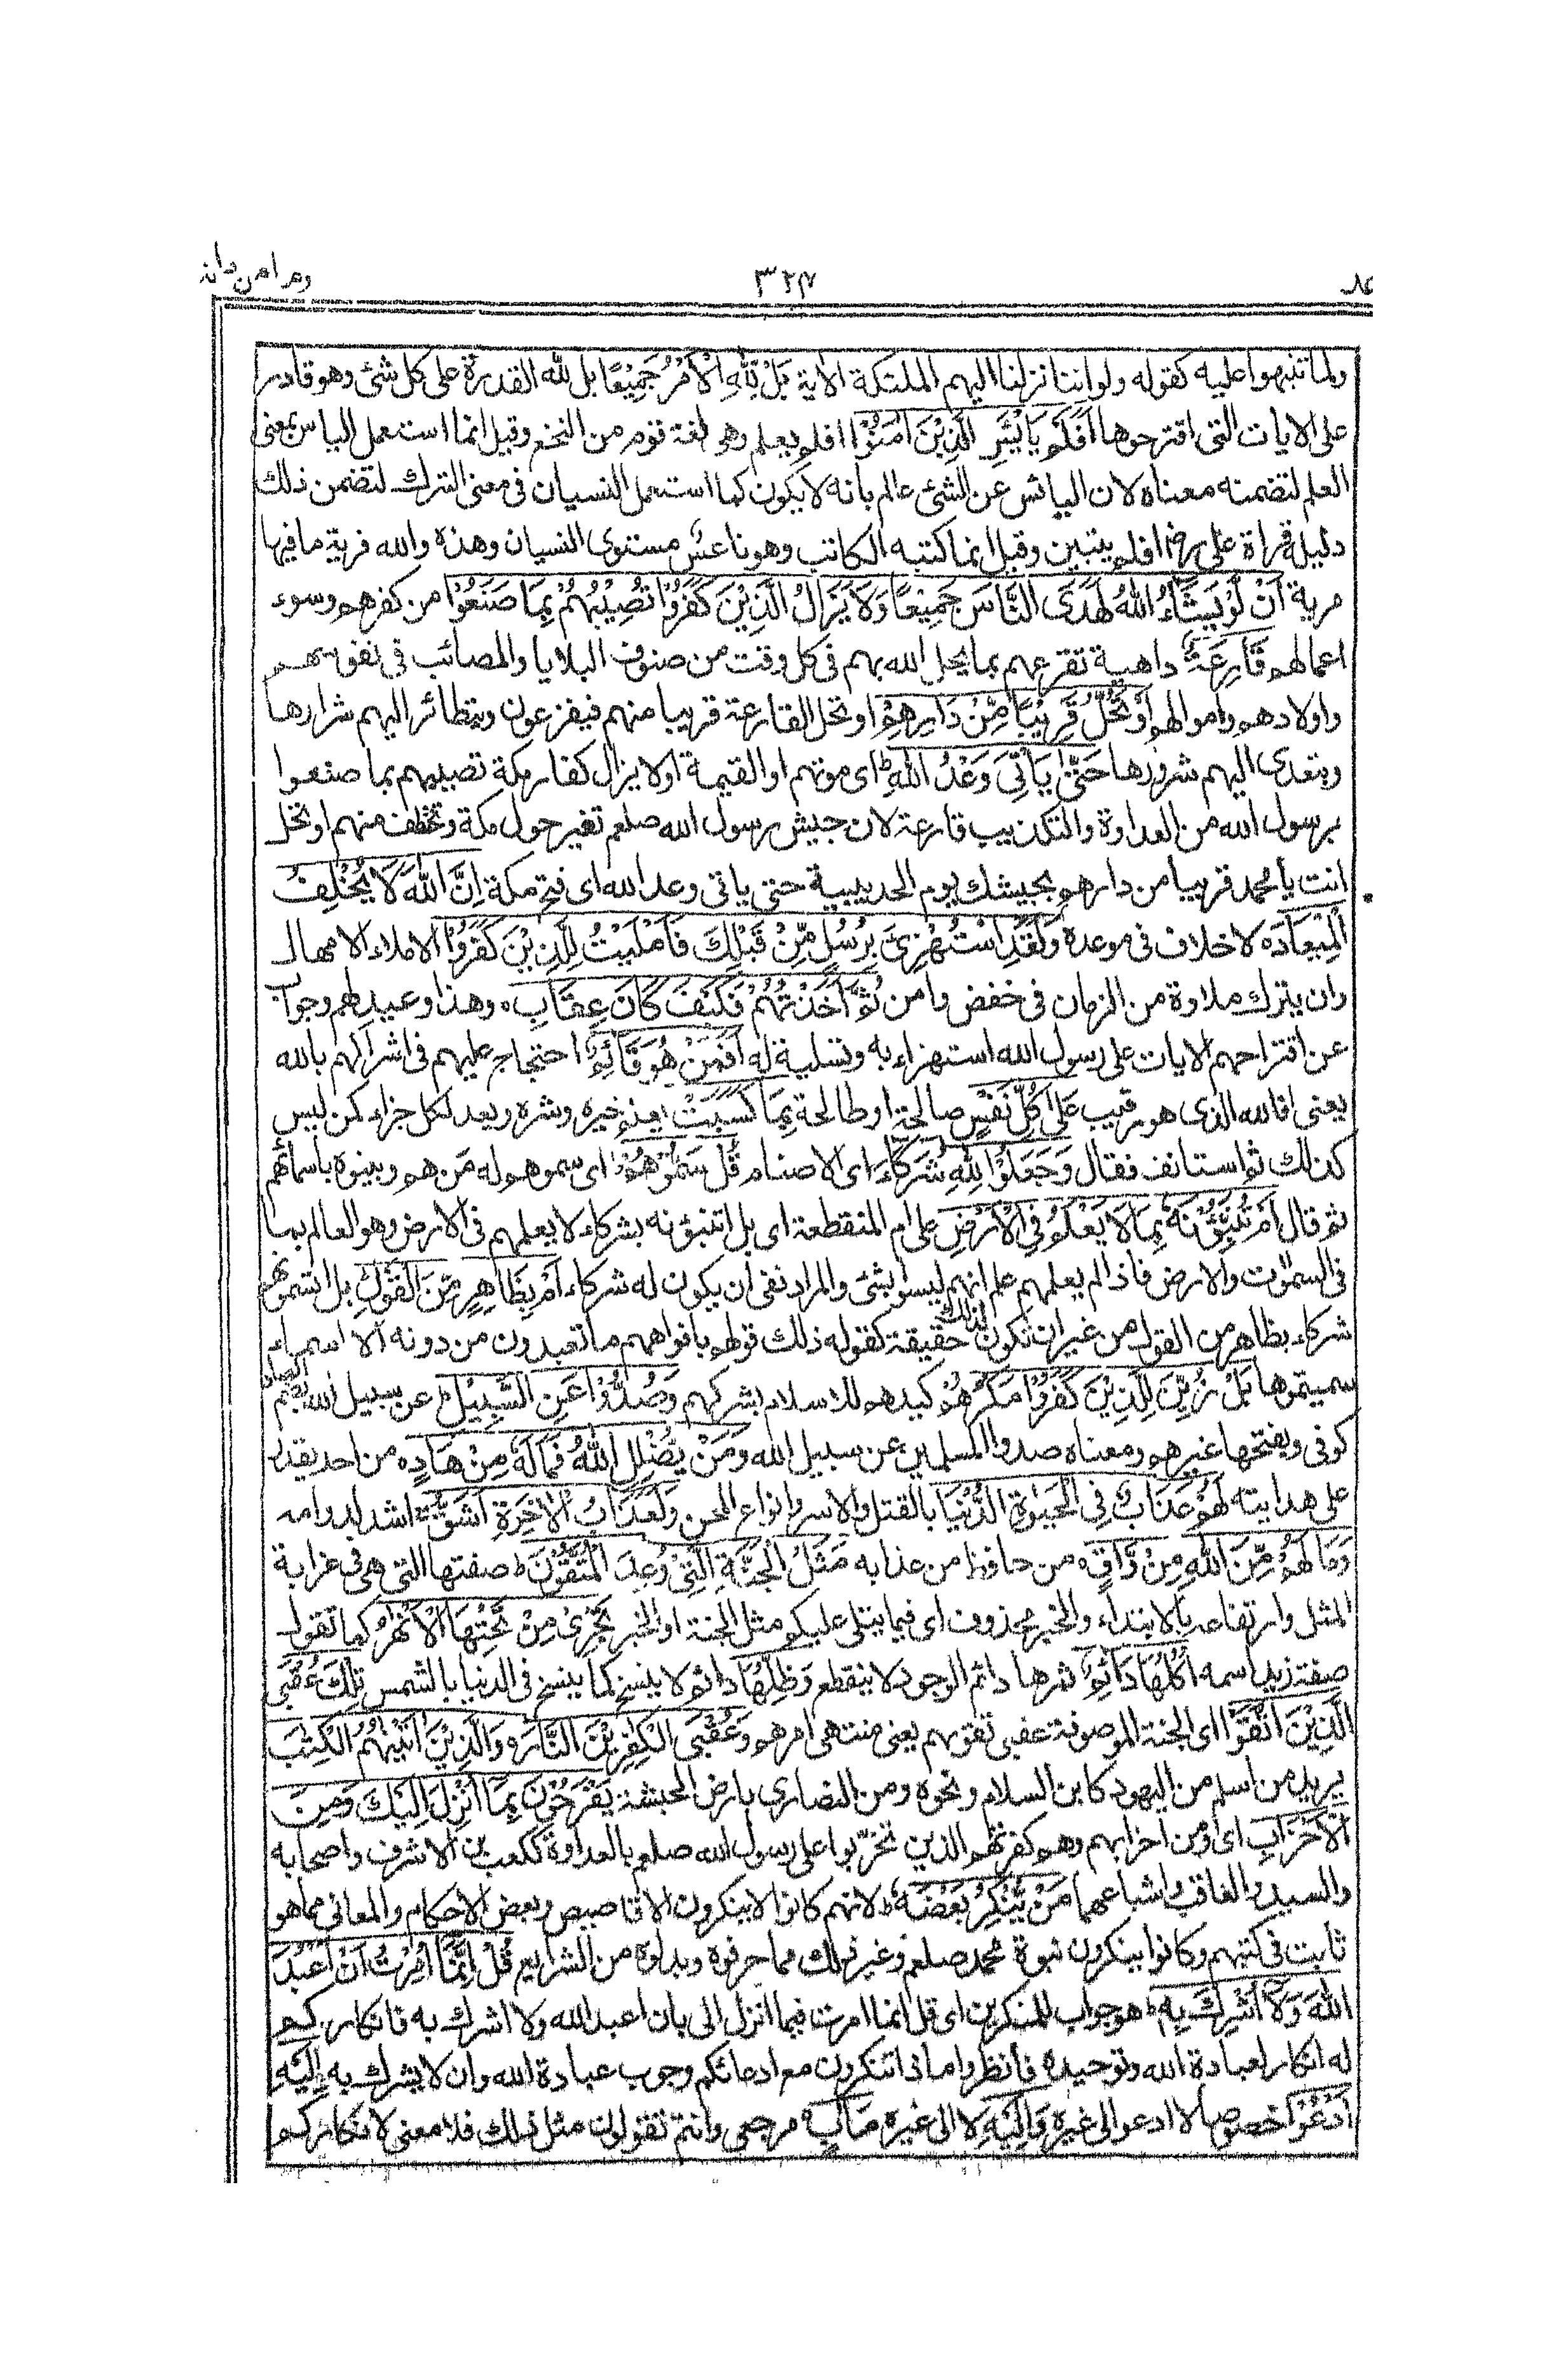 وما من دابة ٣٢٧
ولما تنبهوا عليه كقوله ولو اننا نزلنا اليهم الملئكة الاية بَلْ لِّلّٰهِ الْاَمْرُ جَمِيْعًا بل لله القدرة على كل شئ وهو قادر
على الايات التى اقترحوها اَفَلَمْ يَايْـَٔسِ الَّذِيْنَ اٰمَنُوْٓا افلم يعلم وهو لغة قوم من النخع وقيل انما استعمل الياس بمعنى
العلم لتضمنه معناه لان اليائس عن الشئ عالم بانه لا يكون كما استعمل النسيان فى معنى الترك لتضمن ذلك
دليله قراة على رض افلم يتبين وقيل انما كتبه الكاتب وهو ناعس مستوى السيان وهذه والله فرية ما فيها
مرية اَنْ لَّوْ يَشَآءُ اللّٰهُ لَهَدَى النَّاسَ جَمِيْعًا وَلَا يَزَالُ الَّذِيْنَ كَفَرُوْا تُصِيْبُهُمْ بِمَا صَنَعُوْا من كفرهم وسوء
اعمالهم قَارِعَةٌ داهية تقرعهم بما يحل الله بهم فى كل وقت من صنوف البلايا والمصائب فى نفوسهم
واولادهم واموالهم اَوْ تَحُلُّ قَرِيْبًا مِّنْ دَارِهِمْ او تحل القارعة قريبا منهم فيفزعون ويتطائر اليهم شرارها
ويتعدى اليهم شرورها حَتّٰى يَاْتِيَ وَعْدُ اللّٰهِ ط اى موتهم او القيمة او لا يزال كفار مكة تصيبهم بما صنعوا
برسول الله من العداوة والتكذيب قارعة لان جيش رسول الله صلعم تغير حول مكة وتخطف منهم او تحل
انت يا محمد قريبا من دارهم بجيشك يوم الحديبية حتى ياتى وعد الله اى فتح مكة اِنَّ اللّٰهَ لَا يُخْلِفُ
الْمِيْعَادَ ه لا خلاف فى موعده وَلَقَدِ اسْتُهْزِئَ بِرُسُلٍ مِّنْ قَبْلِكَ فَاَمْلَيْتُ لِلَّذِيْنَ كَفَرُوْا الاملاء الامهال
وان يترك ملاوة من الزمان فى خفض وامن ثُمَّ اَخَذْتُهُمْ فَكَيْفَ كَانَ عِقَابِ ه وهذا وعيد لهم وجواب
عن اقتراحهم الايات على رسول الله استهزاء به وتسلية له اَفَمَنْ هُوَ قَآئِمٌ احتجاج عليهم فى اشراكهم بالله
يعنى افالله الذى هو رقيب عَلٰى كُلِّ نَفْسٍ صالحة او طالحة بِمَا كَسَبَتْ يعلم خيره وشره ويعد لكل جزاء كمن ليس
كذلك ثم استانف فقال وَجَعَلُوْا لِلّٰهِ شُرَكَآءَ اى الاصنام قُلْ سَمُّوْهُمْ اى سموهم له من هم وبينوه باسمائهم
ثم قال اَمْ تُنَبِّئُوْنَهٗ بِمَا لَا يَعْلَمُ فِى الْاَرْضِ على ام المنقطعة اى بل اتنبؤنه بشركاء لا يعلمهم فى الارض وهو العالم بما
فى السموت والارض فاذا لم يعلمهم علم انهم ليسوا بشئ والمراد نفى ان يكون له شركاء اَمْ بِظَاهِرٍ مِّنَ الْقَوْلِ بل اتسمونهم
شركاء بظاهر من القول من غير ان تكون لذلك حقيقة كقوله ذلك قولهم بافواههم ما تعبدون من دونه الا اسماء
سميتموها بَلْ زُيِّنَ لِلَّذِيْنَ كَفَرُوْا مَكْرُهُمْ كيدهم للاسلام بشركهم وَصُدُّوْا عَنِ السَّبِيْلِ ط عن سبيل الله بضم الصاد
كوفى وبفتحها غيرهم ومعناه صدوا المسلمين عن سبيل الله وَمَنْ يُّضْلِلِ اللّٰهُ فَمَا لَهٗ مِنْ هَادٍ ه من احد يقدر
على هدايته لَهُمْ عَذَابٌ فِى الْحَيٰوةِ الدُّنْيَا بالقتل والاسر وانواع المحن وَلَعَذَابُ الْاٰخِرَةِ اَشَقُّ ج اشد لدوامه
وَمَا لَهُمْ مِّنَ اللّٰهِ مِنْ وَّاقٍ ه من حافظ من عذابه مَثَلُ الْجَنَّةِ الَّتِيْ وُعِدَ الْمُتَّقُوْنَ ط صفتها التى هى فى غرابة
المثل وارتفاعه بالابتداء والخبر محذوف اى فيما يتلى عليكم مثل الجنة او الخبر تَجْرِيْ مِنْ تَحْتِهَا الْاَنْهٰرُ كما تقول
صفة زيد اسمه اُكُلُهَا دَآئِمٌ ثمرها دائم الوجود لا ينقطع وَّظِلُّهَا دائم لا ينسخ كما ينسخ فى الدنيا بالشمس تِلْكَ عُقْبَى
الَّذِيْنَ اتَّقَوْا اى الجنة الموصوفة عقبى تقوىهم يعنى منتهى امرهم وَعُقْبَى الْكٰفِرِيْنَ النَّارُ ه وَالَّذِيْنَ اٰتَيْنٰهُمُ الْكِتٰبَ
يريد من اسلم من اليهود كابن السلام ونحوه ومن النصارى بارض الحبشة يَفْرَحُوْنَ بِمَآ اُنْزِلَ اِلَيْكَ وَمِنَ
الْاَحْزَابِ اى ومن احزابهم وهم كفرتهم الذين تحزبوا على رسول الله صلعم بالعداوة ككعب بن الاشرف واصحابه
والسيد والعاقب واشياعهما مَنْ يُّنْكِرُ بَعْضَهٗ ط لانهم كانوا لا ينكرون الاقاصيص وبعض الاحكام والمعانى مما هو
ثابت فى كتبهم وكانوا ينكرون نبوة محمد صلعم وغير ذلك مما حرفوه وبدلوه من الشرايع قُلْ اِنَّمَآ اُمِرْتُ اَنْ اَعْبُدَ
اللّٰهَ وَلَآ اُشْرِكَ بِهٖ ط هو جواب للمنكرين اى قل انما امرت فيما انزل الى بان اعبد الله ولا اشرك به فانكاركم
له انكار لعبادة الله وتوحيده فانظروا ماذا تنكرون مع ادعائكم وجوب عبادة الله وان لا يشرك به اِلَيْهِ
اَدْعُوْا خصوصا لا ادعو الى غيره وَاِلَيْهِ لا الى غيره مَاٰبِ ه مرجعى وانتم تقولون مثل ذلك فلا معنى لانكاركم